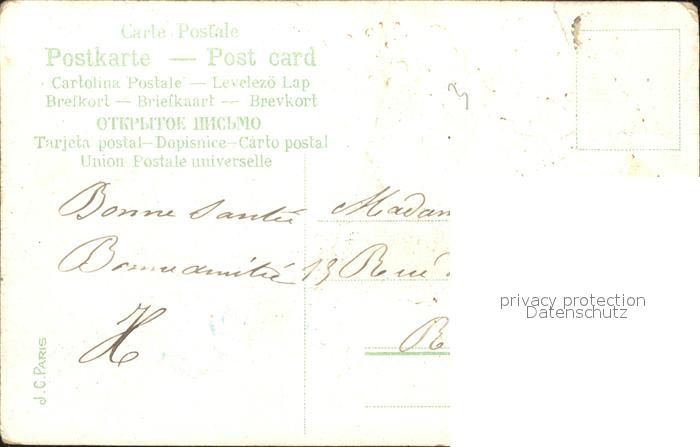 Carte Postale
Postkarte — Post card
Cartolina Postale — Levelező Lap
Brefkort — Briefkaart — Brevkort
ОТКРЫТОЕ ПИСЬМО
Tarjeta postal—Dopisnice—Carto postal
Union Postale universelle
Bonne Santée
Bonne amitié
H
Madam
13 Rue
R
privacy protection
Datenschutz
J.C. PARIS